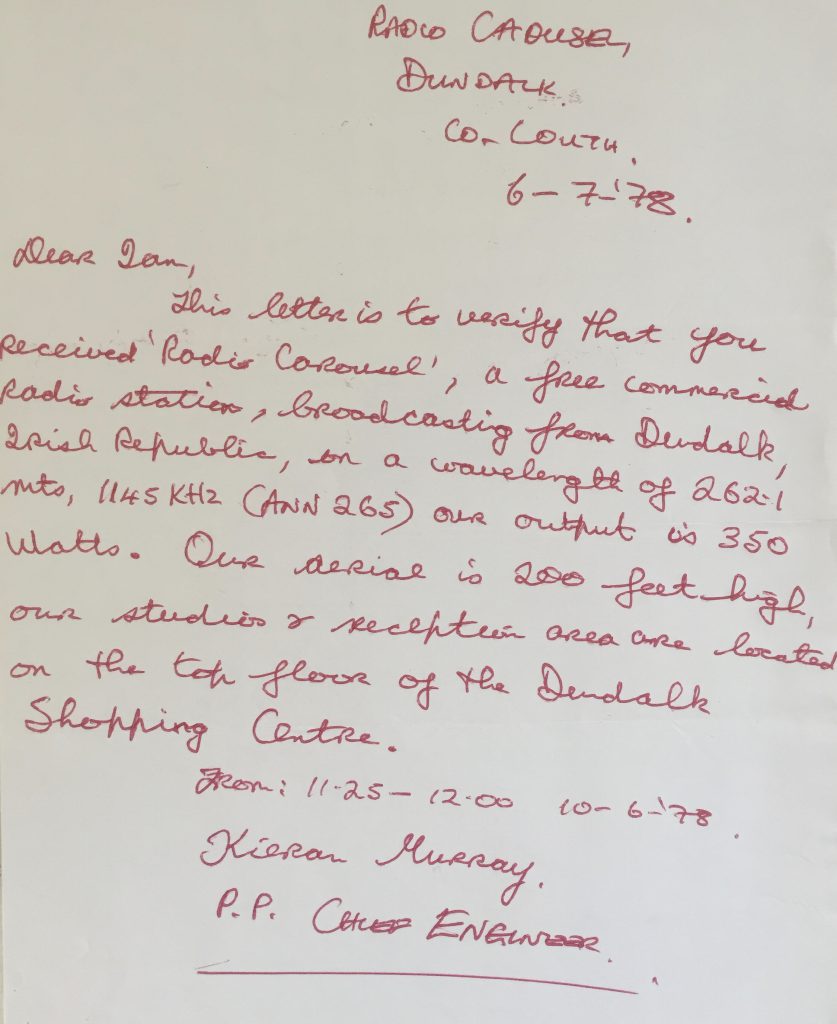 RADIO CAOUSEL,
DUNDALK.
CO. LOUTH.
6-7-'78.
Dear Ian,
This letter is to verify that you
received 'Radio Carousel', a free commercial
radio station, broadcasting from Dundalk,
Irish Republic, on a wavelength of 262.1
mts, 1145 KHz (ANN 265) our output is 350
Watts. Our aerial is 200 feet high,
our studios & reception area are located
on the top floor of the Dundalk
Shopping Centre.
From: 11.25 - 12.00 10-6-'78.
Kieran Murray.
P.P. CHIEF ENGINEER.